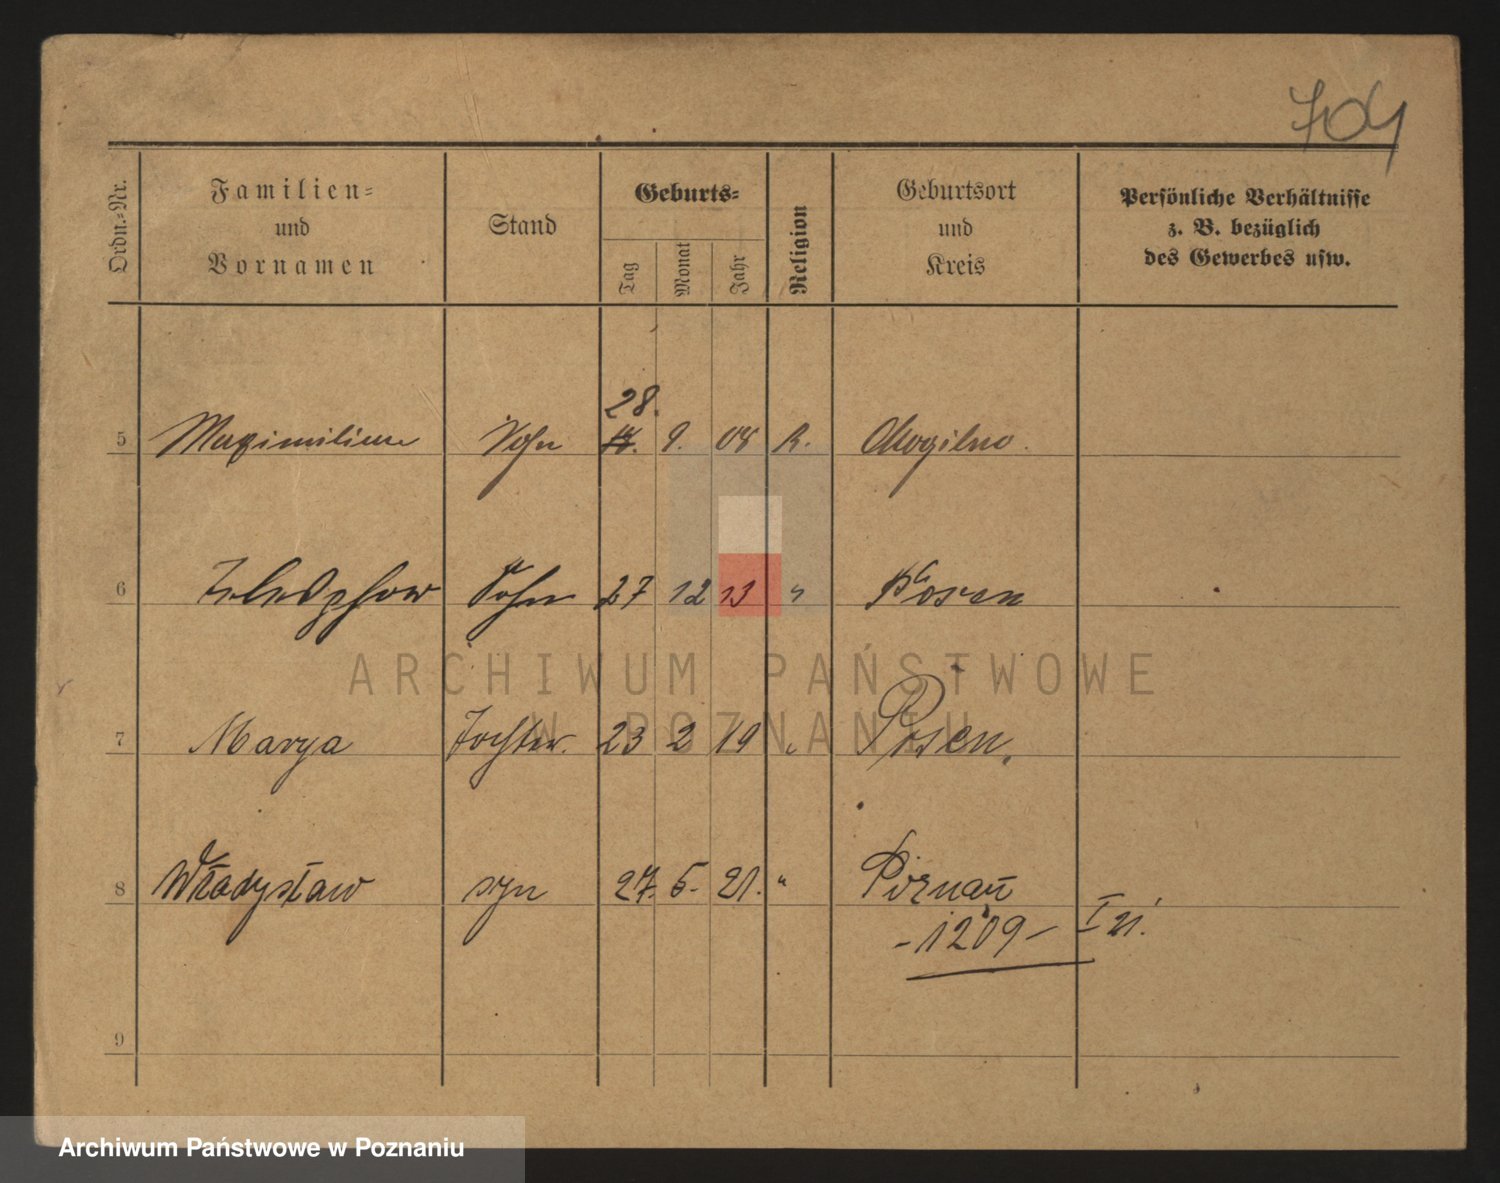 704
Ordn.=Nr.
Familien=
und
Vornamen
Stand
Geburts=
Tag
Monat
Jahr
Religion
Geburtsort
und
Kreis
Persönliche Verhältnisse
z. B. bezüglich
des Gewerbes usw.
28.
5 Maximilian Sohn 9. 08 R. Mogilno.
6 Sohn 27 12 13 " Posen
ARCHIWUM PAŃSTWOWE
W POZNANIU
7 Marya Tochter. 23 2 19 " Posen.
8 Władysław syn 27. 5. 21. " Poznań
-1209- I 21.
9
Archiwum Państwowe w Poznaniu